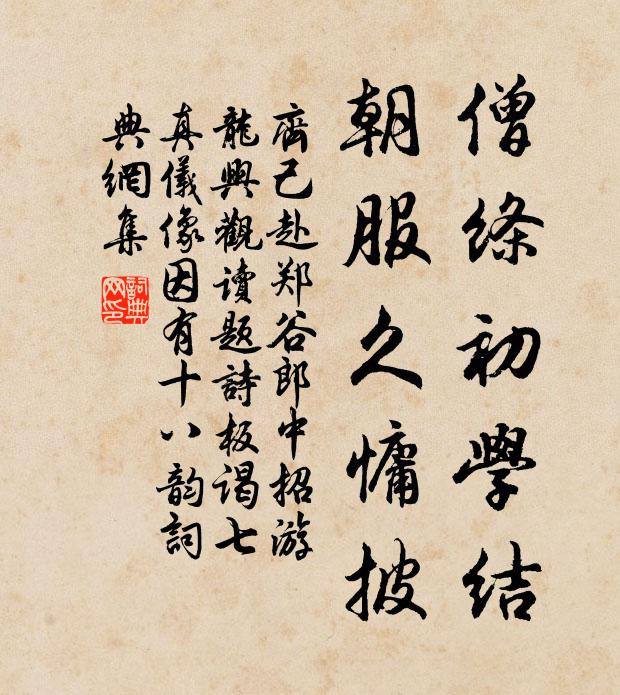 僧絛初學結
朝服久慵披
齊己赴郑谷郎中招游
龍興觀讀題詩板謁七
真儀像因有十八韵詞
典網集
詞典
网印